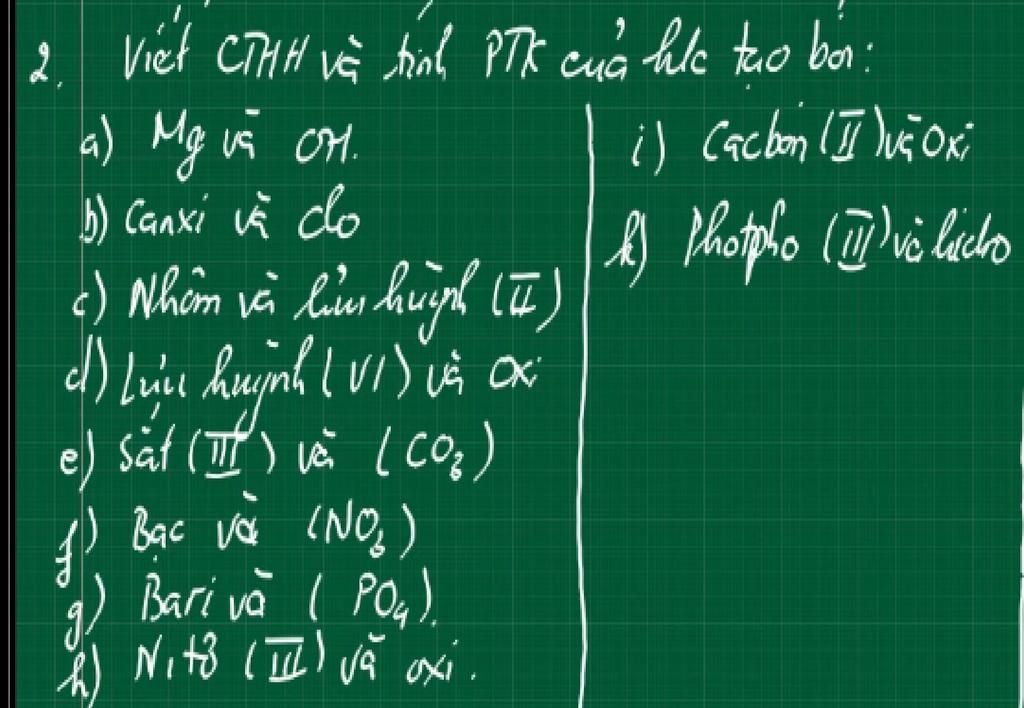 2. Viết CTHH và tính PTK của h/c tạo bởi:
a) Mg và OH.
b) Canxi và clo
c) Nhôm và lưu huỳnh (II)
d) Lưu huỳnh (VI) và oxi
e) Sắt (III) và (CO3)
f) Bạc và (NO3)
g) Bari và (PO4).
h) Nitơ (III) và oxi.
i) Cacbon (II) và Oxi
k) Photpho (III) và hidro